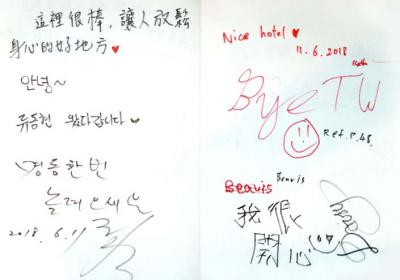 這裡很棒，讓人放鬆
身心的好地方♥
안녕~
류동현 왔다갑니다♥
명동한번
놀러오세요
2018. 6.11
Nice hotel ♥
11.6.2018
Bye TW
Ref. P.48.
Beavis
Beavis
我很
開心